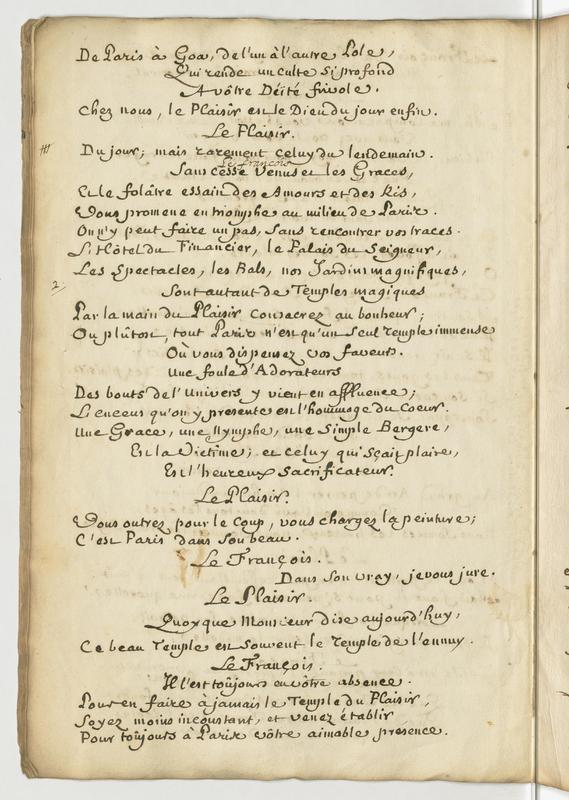 De Paris à Goa, de l'un à l'autre Pole,
Qui rende un culte si profond
A vôtre Déité frivole.
Chez nous, le Plaisir est le Dieu du jour enfin.
Le Plaisir.
Du jour; mais rarement celuy du lendemain.
Le François
Sans cesse Venus et les Graces,
Et le folâtre essain des Amours et des Ris,
Vous promene en triomphe au milieu de Paris.
On n'y peut faire un pas, sans rencontrer vos traces.
L'Hôtel du Financier, le Palais du Seigneur,
Les Spectacles, les Bals, nos Jardins magnifiques,
2/
Sont autant de Temples magiques
Par la main du Plaisir consacrez au bonheur;
Ou plûtost, tout Paris n'est qu'un seul temple immense
Où vous dispensez vos faveurs.
Une foule d'Adorateurs
Des bouts de l'Univers y vient en affluence;
L'encens qu'on y presente est l'hommage du coeur.
Une Grace, une Nymphe, une simple Bergere,
Est la Victime; et celuy qui sçait plaire,
Est l'heureux Sacrificateur.
Le Plaisir.
Vous outrez pour le coup, vous chargez la peinture;
C'est Paris dans son beau.
Le François.
Dans son vray, je vous jure.
Le Plaisir.
Quoyque Monsieur dise aujourd'huy,
Ce beau Temple est souvent le Temple de l'ennuy.
Le François.
Il l'est toûjours en vôtre absence.
Pour en faire à jamais le Temple du Plaisir,
Soyez moins inconstant, et venez établir
Pour toûjours à Paris vôtre aimable présence.